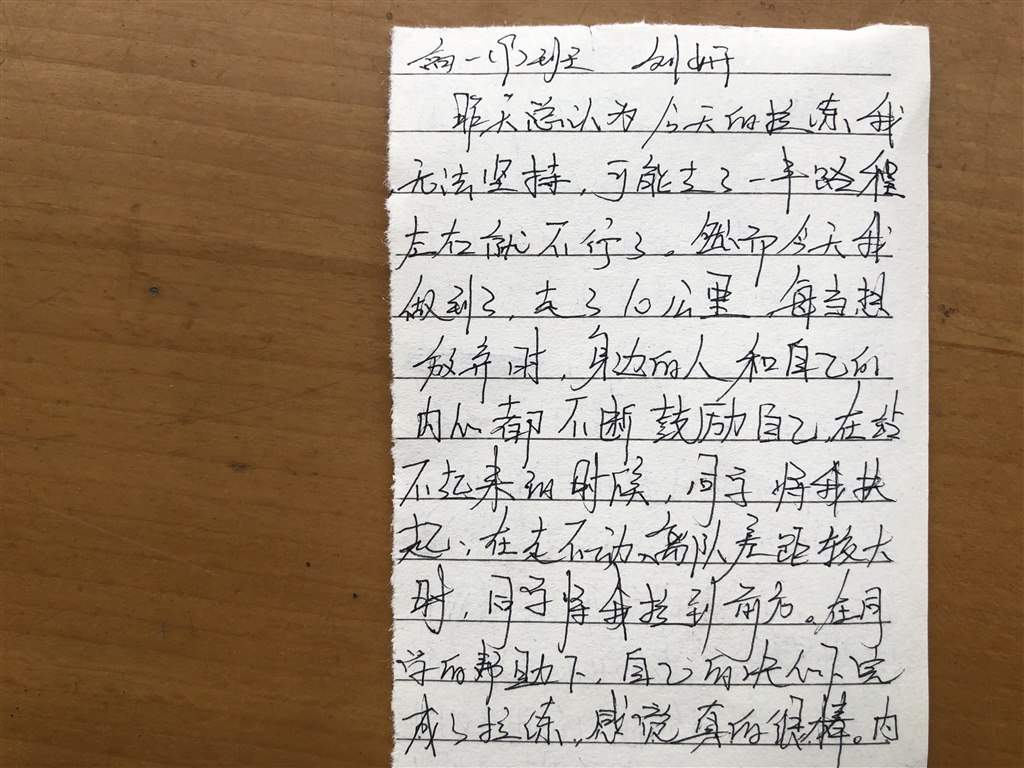 高一(1)班 刘妍
昨天总认为今天的拉练,我
无法坚持,可能走了一半路程
左右就不行了。然而今天我
做到了,走了10公里,每当想
放弃时,身边的人和自己的
内心都不断鼓励自己,在站
不起来的时候,同学将我扶
起;在走不动、离队差距较大
时,同学将我拉到前方。在同
学的帮助下,自己的决心下完
成了拉练,感觉真的很棒。内